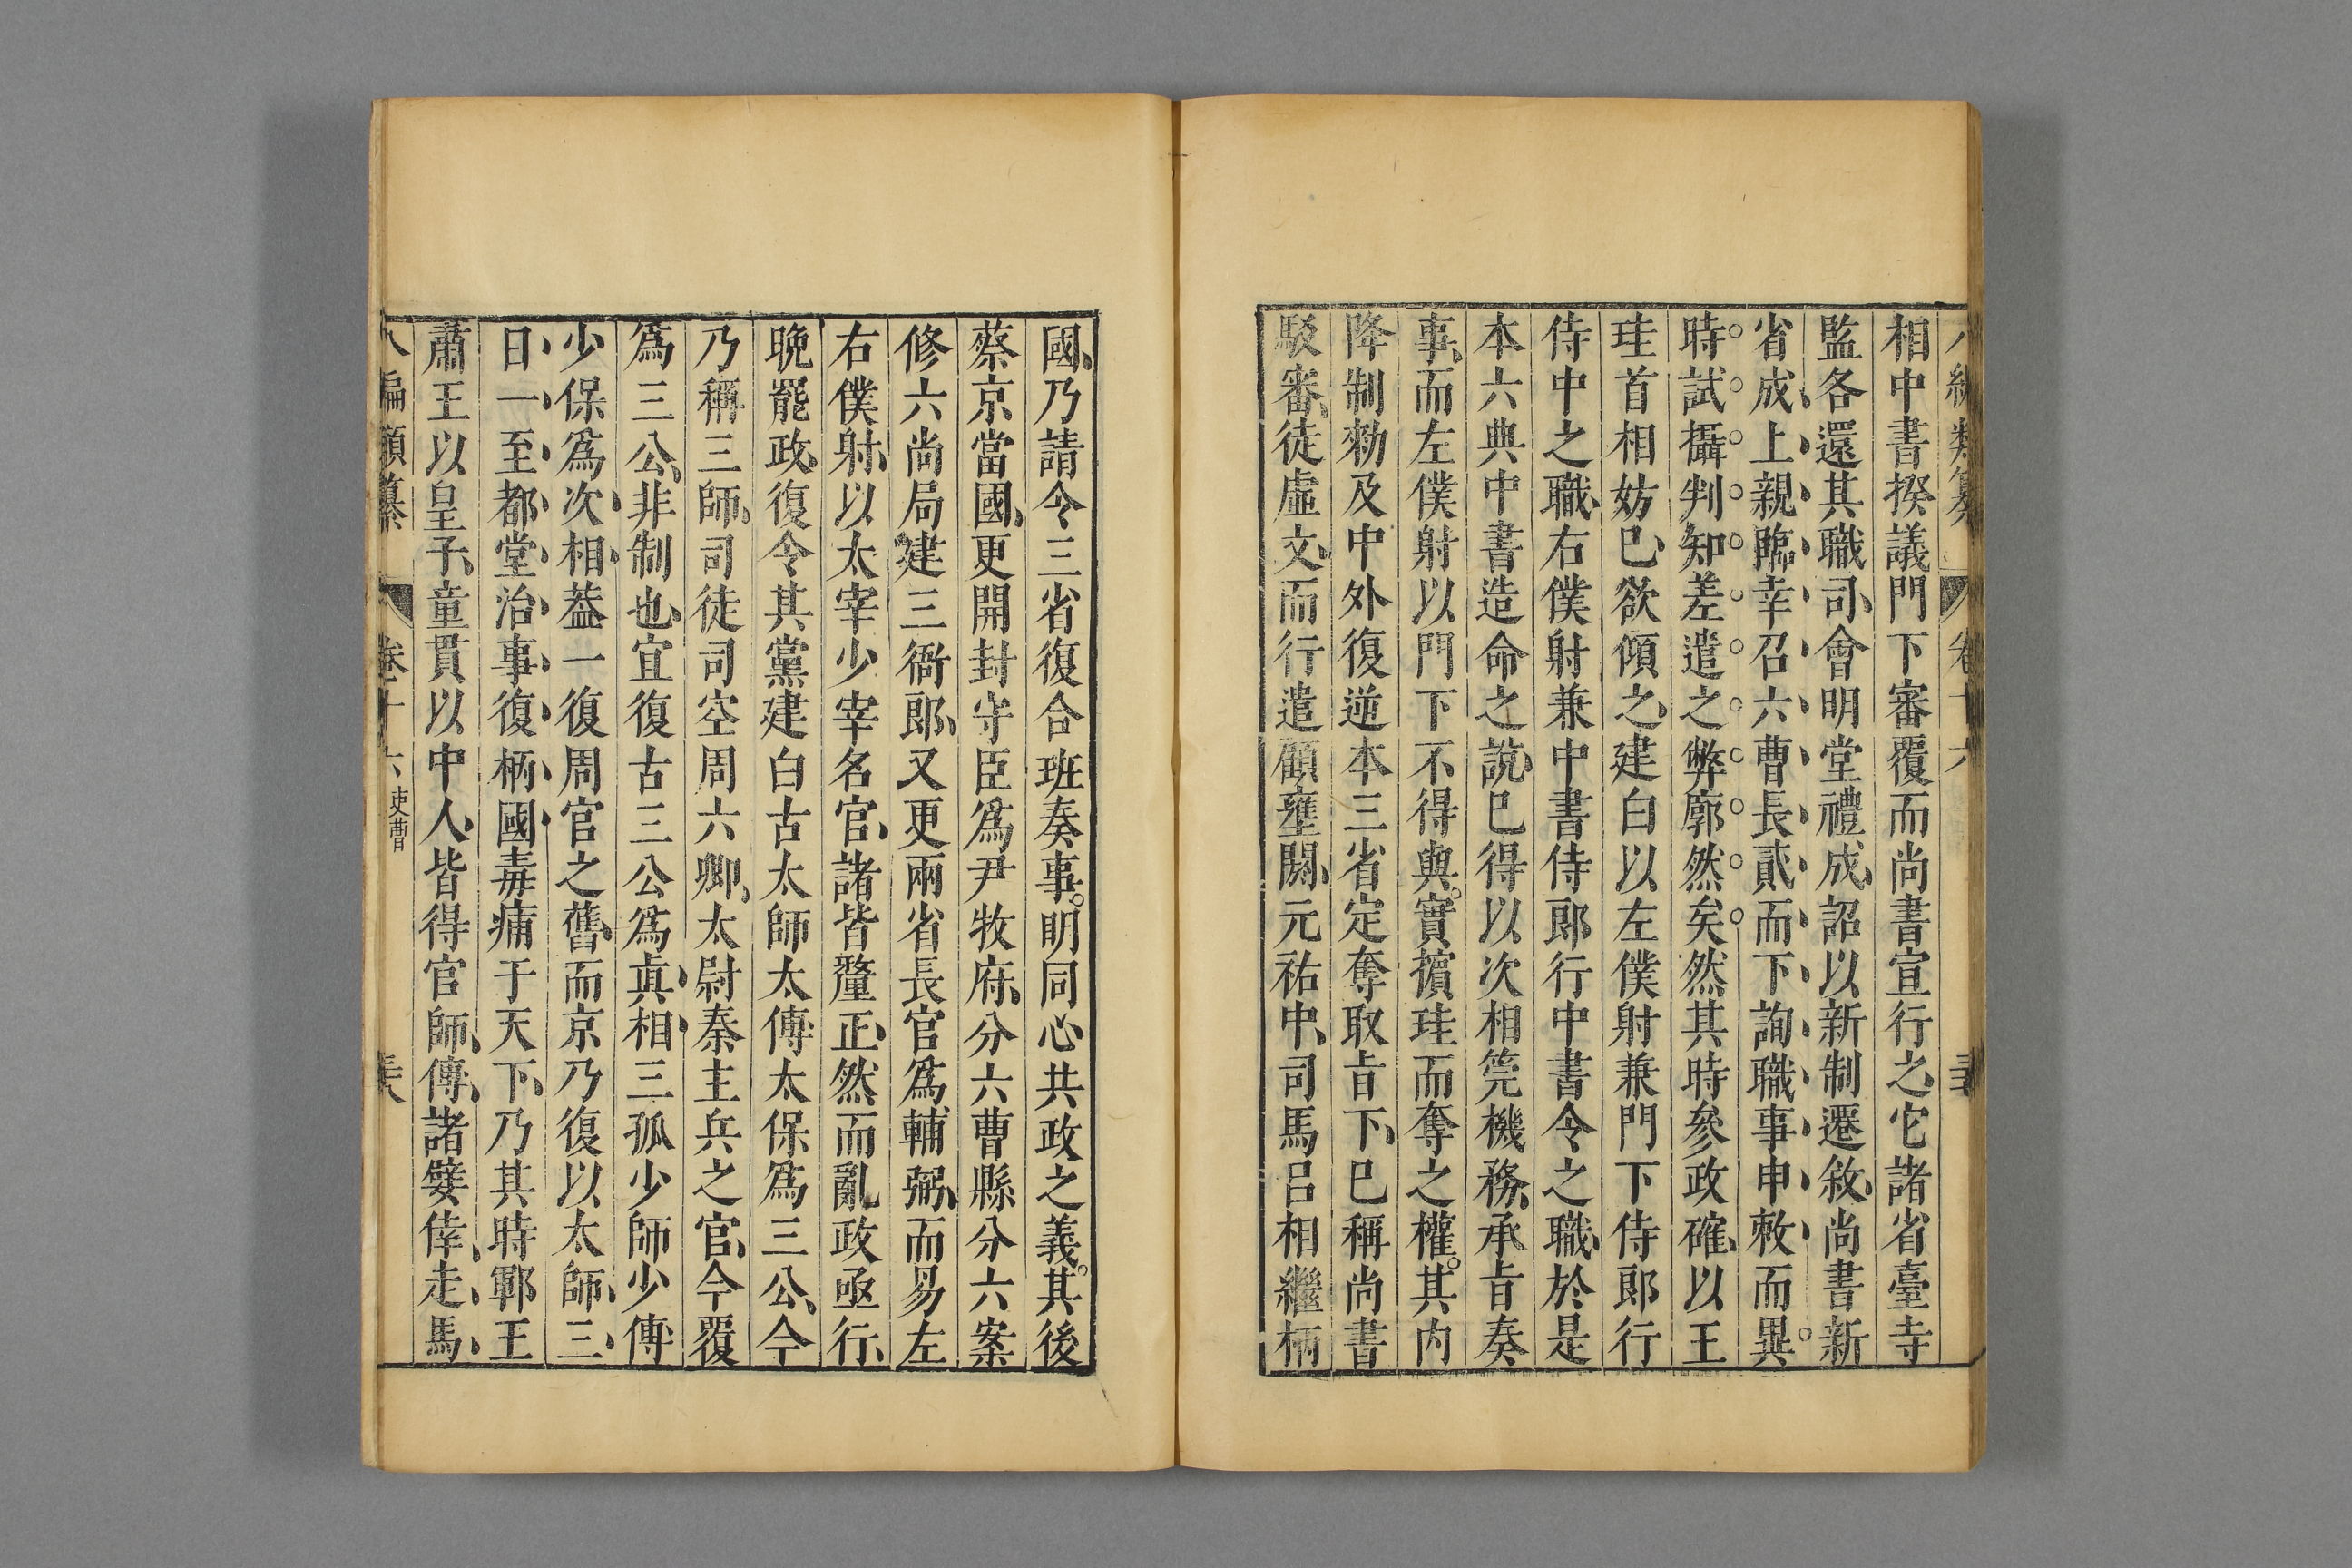 八編類纂 卷十六
相中書揆議門下審覆而尚書宣行之它諸省臺寺
監各還其職司會明堂禮成詔以新制遷敘尚書新
省成上親臨幸召六曹長貳而下詢職事申敕而異
時試攝判知差遣之弊廓然矣然其時參政確以王
珪首相妨已欲傾之建白以左僕射兼門下侍郎行
侍中之職右僕射兼中書侍郎行中書令之職於是
本六典中書造命之說已得以次相筦機務承旨奏
事而左僕射以門下不得與實擯珪而奪之權其內
降制勑及中外復逆本三省定奪取旨下已稱尚書
駁審徒虛文而行遣顧壅閼元祐中司馬呂相繼柄
國乃請令三省復合班奏事明同心共政之義其後
蔡京當國更開封守臣爲尹牧府分六曹縣分六案
修六尚局建三衙郎又更兩省長官爲輔弼而易左
右僕射以太宰少宰名官諸皆釐正然而亂政亟行
晚罷政復令其黨建白古太師太傅太保爲三公今
乃稱三師司徒司空周六卿太尉秦主兵之官今覆
爲三公非制也宜復古三公爲眞相三孤少師少傅
少保爲次相葢一復周官之舊而京乃復以太師三
日一至都堂治事復柄國毒痡于天下乃其時鄆王
肅王以皇子童貫以中人皆得官師傅諸嬖倖走馬
八編類纂 卷十六 吏曹 三六